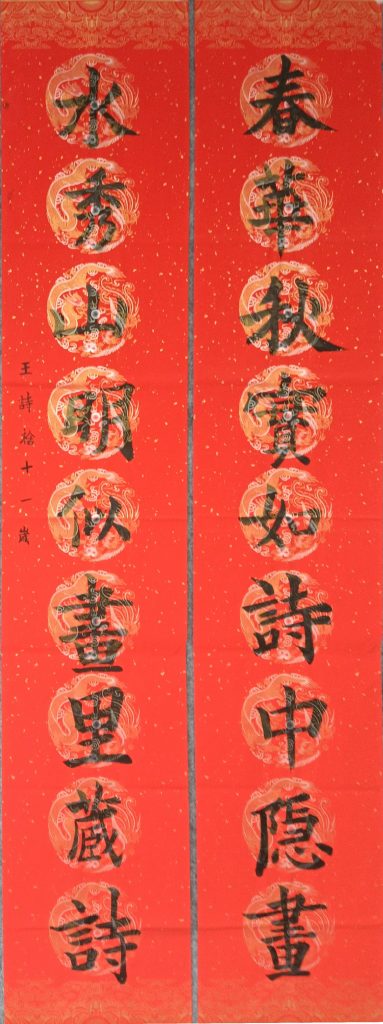 春華秋實如詩中隱畫
水秀山明似畫里蔵詩
王詩捨十一歲